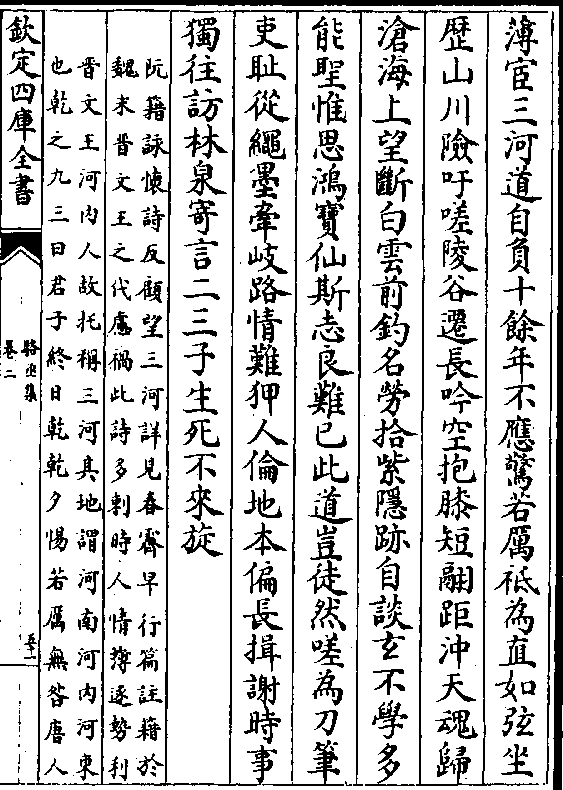 薄宦三河道自負十餘年不應驚若厲祗為直如弦坐
歴山川險吁嗟陵谷遷長吟空抱膝短翮詎沖天魂歸
滄海上望斷白雲前釣名勞拾紫隱跡自談玄不學多
能聖惟思鴻寳仙斯志良難已此道豈徒然嗟為刀筆
吏耻從繩墨牽岐路情難狎人倫地本偏長揖謝時事
獨往訪林泉寄言二三子生死不來旋
阮籍詠懷詩反顧望三河詳見春霽早行篇註籍於
魏末晋文王之代慮禍此詩多刺時人情薄逐勢利
晋文王河内人故托稱三河其地謂河南河内河東
也乾之九三曰君子終日乾乾夕惕若厲無咎唐人
欽定四庫全書
駱丞集
卷二